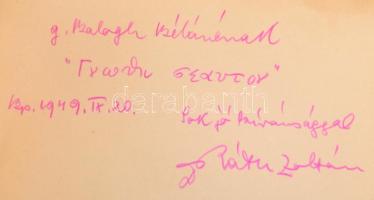 g. Balogh Bélánénak
"Γνωθι σεαυτον"
Bp. 1949. IX. 20.
Sok jó kívánsággal
Ráth Zoltán
darabanth